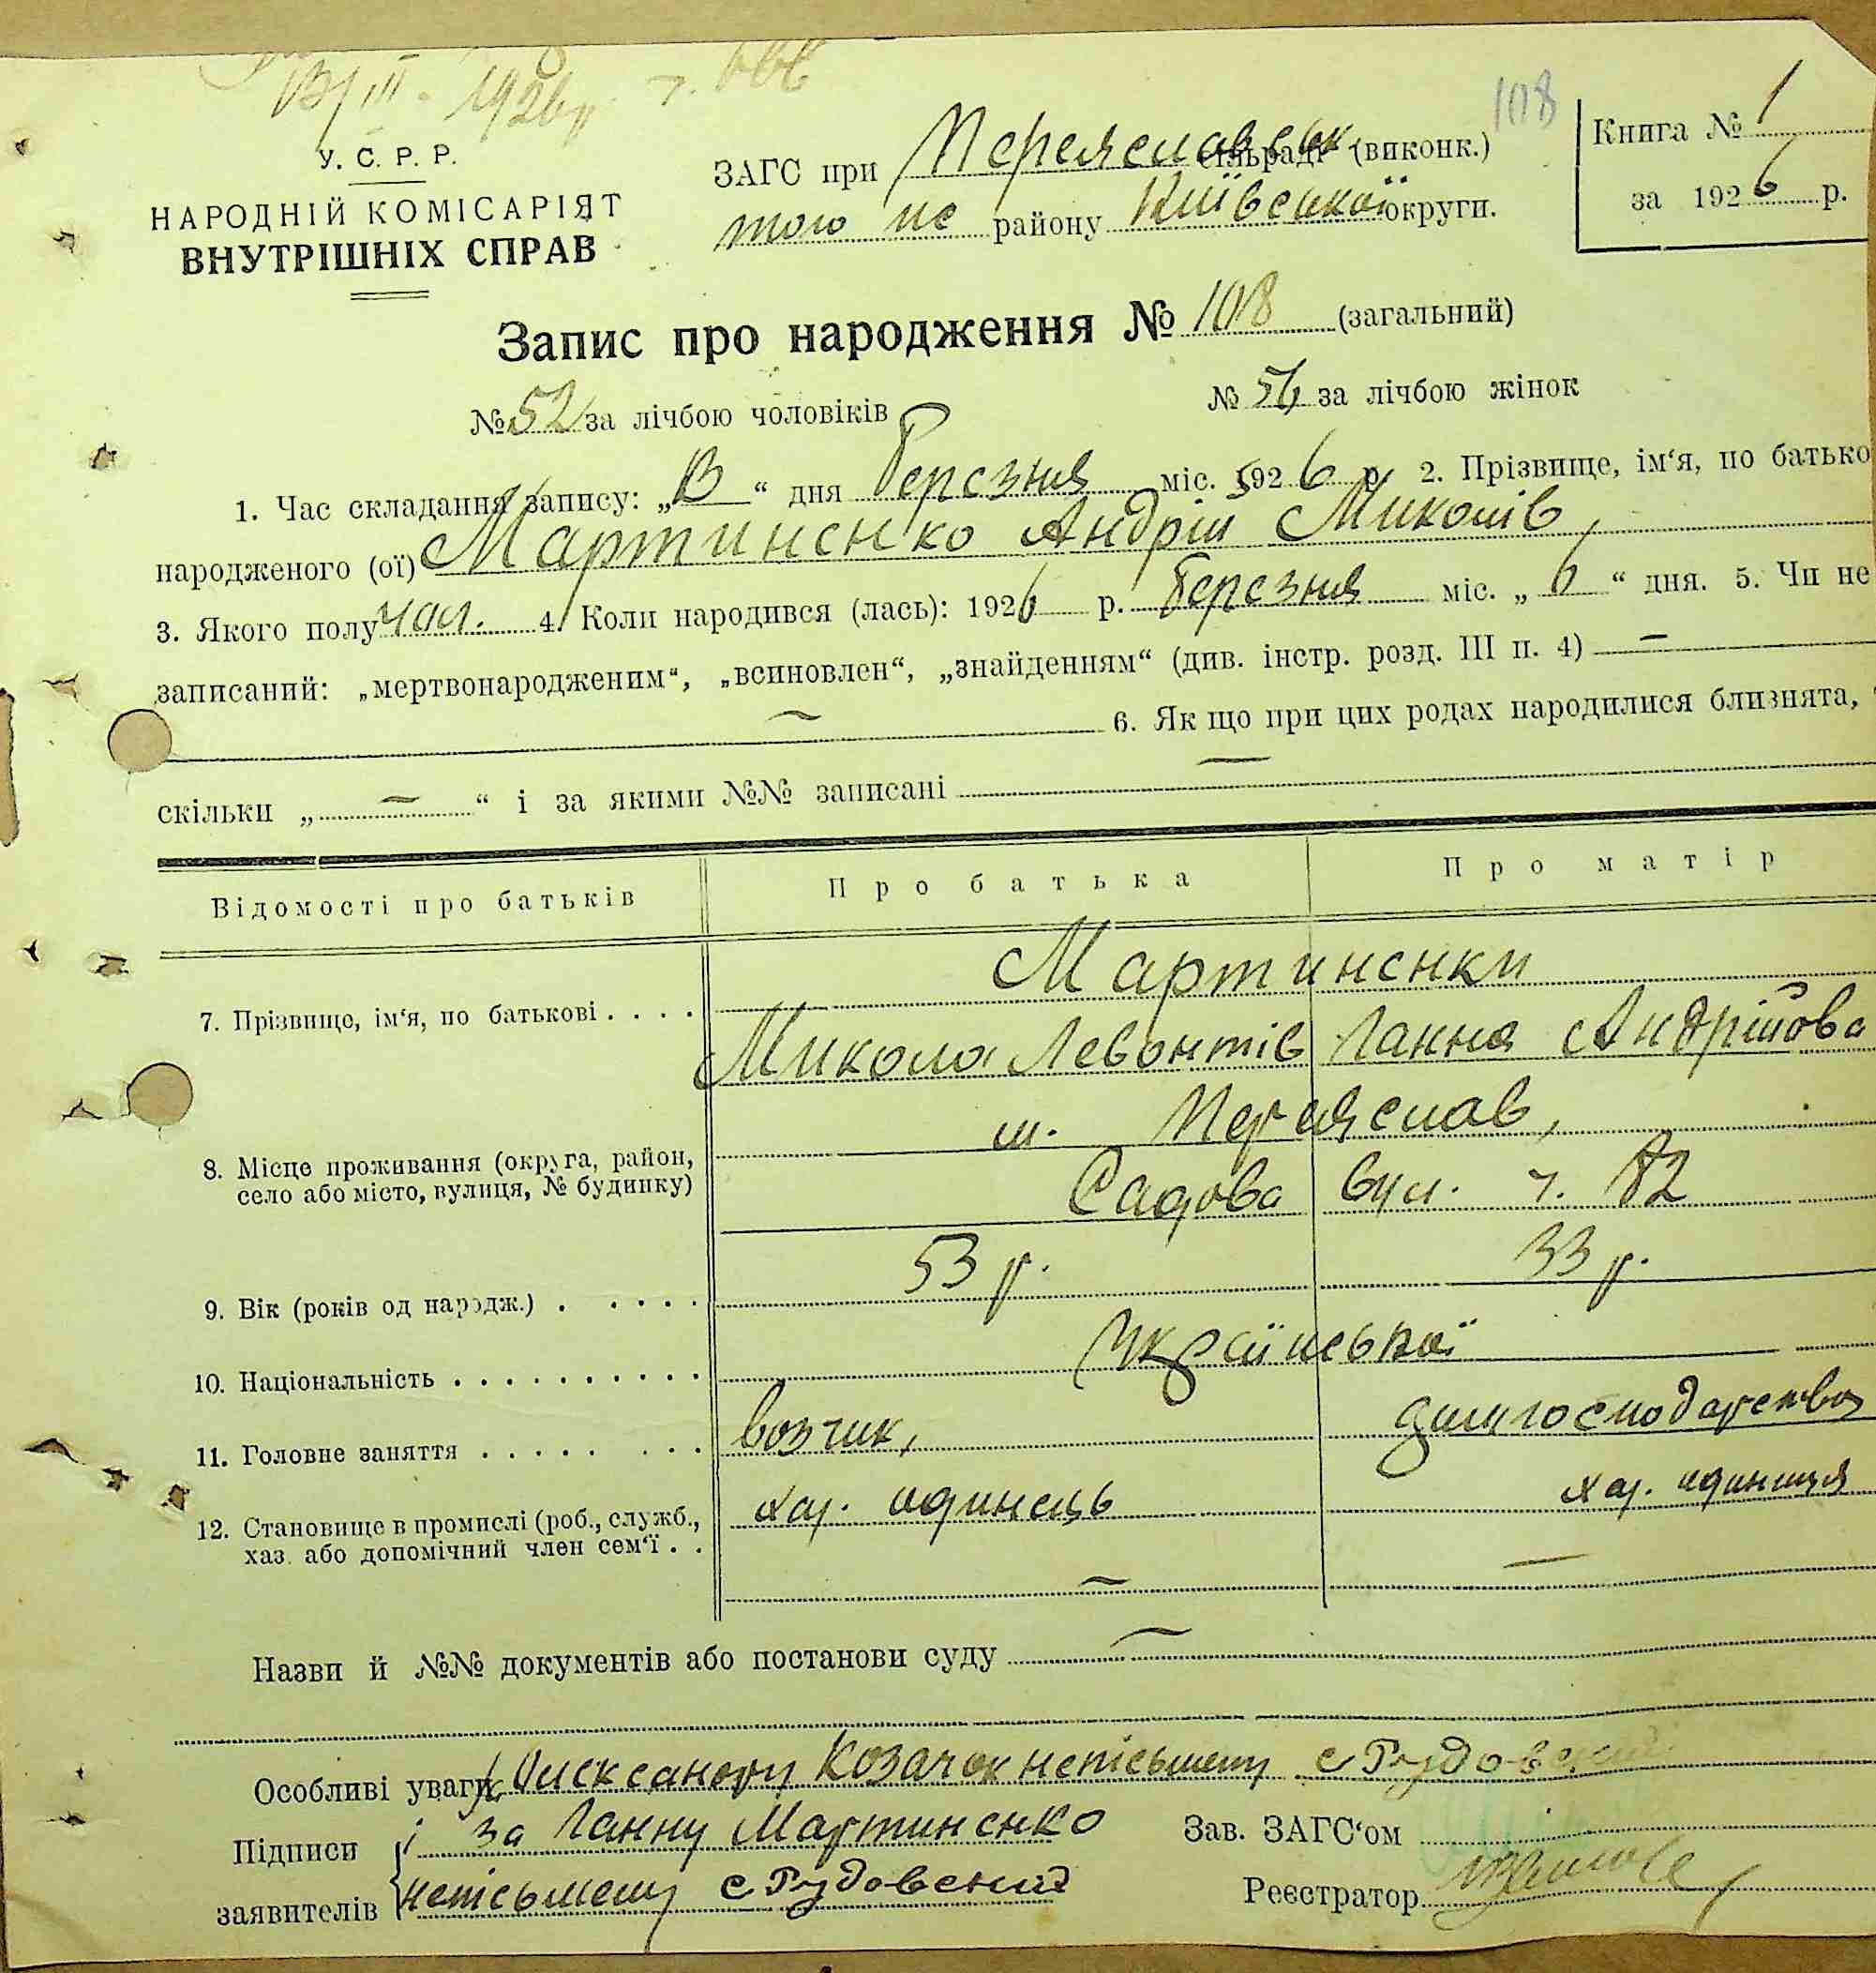 1926 р. ч.
108
У. С. Р. Р.
НАРОДНІЙ КОМІСАРІЯТ
ВНУТРІШНІХ СПРАВ
ЗАГС при Переяславськ сільраді (виконк.)
того не району Київської округи.
Книга № 1
за 1926 р.
Запис про народження № 108 (загальний)
№ 52 за лічбою чоловіків № 56 за лічбою жінок
1. Час складання запису: „13“ дня Березня міс. 1926 р. 2. Прізвище, ім‘я, по батько
народженого (ої) Мартиненко Андрій Миколів,
3. Якого полу чол. 4. Коли народився (лась): 1926 р. Березня міс. „6“ дня. 5. Чи не
записаний: „мертвонародженим“, „всиновлен“, „знайденням“ (див. інстр. розд. III п. 4) —
— 6. Як що при цих родах народилися близнята,
скільки „—“ і за якими №№ записані —
Відомості про батьків Про батька Про матір
Мартиненки
7. Прізвище, ім‘я, по батькові . . . . Микола Левонтів Ганна Андрійова
м. Переяслав,
8. Місце проживання (округа, район,
село або місто, вулиця, № будинку) Садова вул. ч. 82
9. Вік (років од народж.) . . . . . 53 р. 33 р.
10. Національність . . . . . . . . . . Української
11. Головне заняття . . . . . . . . возчик, дом господарство
12. Становище в промислі (роб., служб., хаз. одинець хаз. одиниця
хаз. або допомічний член сем‘ї . . — —
Назви й №№ документів або постанови суду —
Особливі уваги: Олександру Козачок непісьмену с Рудовский
Підписи за Ганну Мартиненко Зав. ЗАГС‘ом
заявителів непісьмену с Рудовский Реєстратор